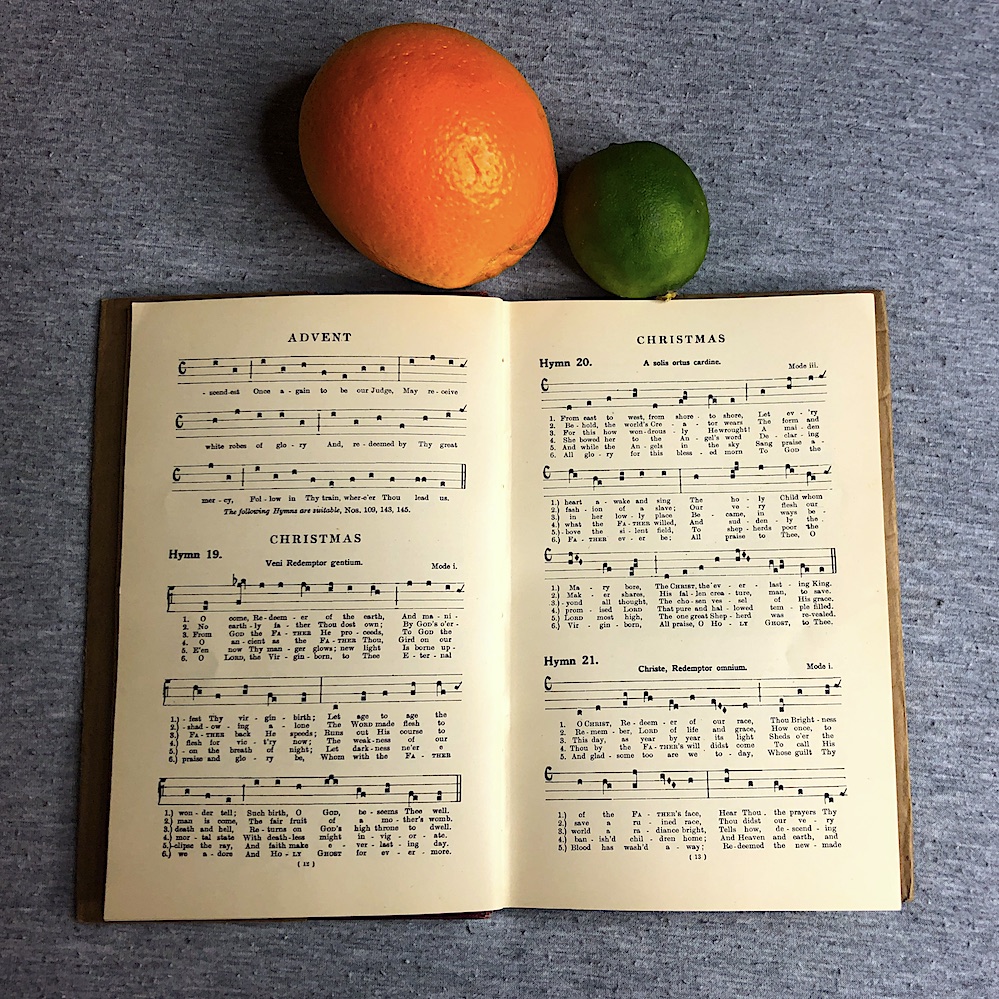 ADVENT
- scend-est Once a - gain to be our Judge, May re - ceive
white robes of glo - ry And, re - deemed by Thy great
mer - cy, Fol - low in Thy train, wher-e'er Thou lead us.
The following Hymns are suitable, Nos. 109, 143, 145.
CHRISTMAS
Hymn 19.
Veni Redemptor gentium. Mode i.
1. O come, Re - deem - er of the earth, And ma - ni -
2. No earth - ly fa - ther Thou dost own; By GOD'S o'er -
3. From GOD the FA - THER He pro - ceeds, To GOD the
4. O an - cient as the FA - THER Thou, Gird on our
5. E'en now Thy man - ger glows; new light Is borne up -
6. O LORD, the Vir - gin - born, to Thee E - ter - nal
1.) - fest Thy vir - gin - birth; Let age to age the
2.) - shad - ow - ing a - lone The WORD made flesh to
3.) FA - THER back He speeds; Runs out His course to
4.) flesh for vic - t'ry now; The weak - ness of our
5.) - on the breath of night; Let dark - ness ne'er e
6.) praise and glo - ry be, Whom with the FA - THER
1.) won - der tell; Such birth, O GOD, be - seems Thee well.
2.) man is come, The fair fruit of a mo - ther's womb.
3.) death and hell, Re - turns on GOD'S high throne to dwell.
4.) mor - tal state With death-less might in - vig - or - ate.
5.) -clipse the ray, And faith make e - ver - last - ing day.
6.) we a - dore And HO - LY GHOST for ev - er - more.
( 12 )
CHRISTMAS
Hymn 20. A solis ortus cardine. Mode iii.
1. From east to west, from shore - to shore, Let ev - 'ry
2. Be - hold, the world's Cre - a - tor wears The form and
3. For this how won - drous - ly He wrought! A mai - den
4. She bowed her to the An - gel's word De - clar - ing
5. And while the An - gels in the sky Sang praise a -
6. All glo - ry for this bless - ed morn To GOD the
1.) heart a - wake and sing The ho - ly Child whom
2.) fash - ion of a slave; Our ve - ry flesh our
3.) in her low - ly place Be - came, in ways be -
4.) what the FA - THER willed, And sud - den - ly the
5.) - bove the si - lent field, To shep - herds poor the
6.) FA - THER ev - er be; All praise to Thee, O
1.) Ma - ry bore, The CHRIST, the ev - er - last - ing King.
2.) Mak - er shares, His fal - len crea - ture, man, to save.
3.) - yond all thought, The cho - sen ves - sel of His grace.
4.) prom - ised LORD That pure and hal - lowed tem - ple filled.
5.) LORD most high, The one great Shep - herd was re - vealed.
6.) Vir - gin - born, All praise, O HO - LY GHOST, to Thee.
Hymn 21.
Christe, Redemptor omnium. Mode i.
1. O CHRIST, Re - deem - er of our race, Thou Bright - ness
2. Re - mem - ber, LORD of life and grace, How once, to
3. This day, as year by year its light Sheds o'er the
4. Thou by the FA - THER'S will didst come To call His
5. And glad - some too are we to - day, Whose guilt Thy
1.) of the FA - THER'S face, Hear Thou the prayers Thy
2.) save a ru - ined race, Thou didst our ve - ry
3.) world a ra - diance bright, Tells how, de - scend - ing
4.) ban - ish'd chil - dren home; And Heaven and earth, and
5.) Blood has wash'd a - way; Re-deemed the new - made
( 13 )